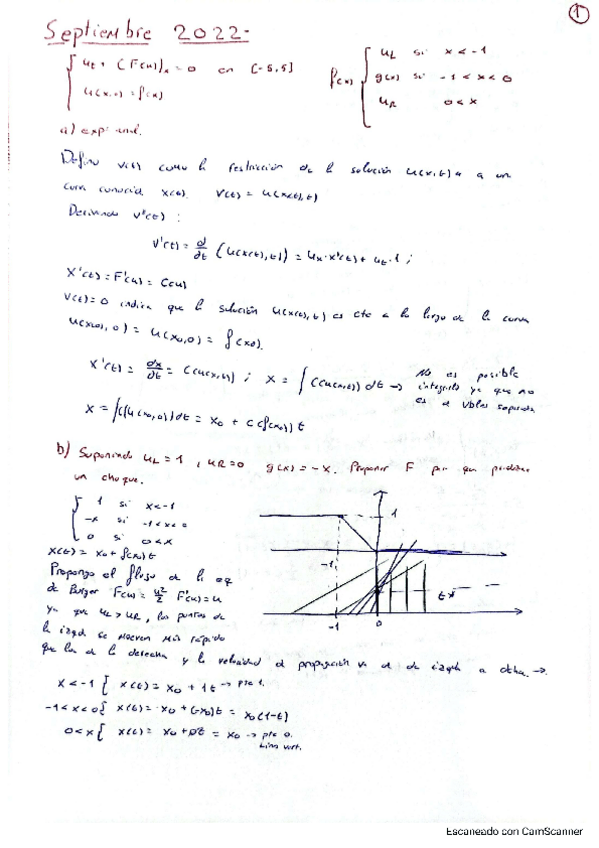 1
Septiembre 2022.-
{ ut + (F(u))x = 0 en [-5,5]
u(x,0) = f(x)
f(x) { uL si x < -1
g(x) si -1 < x < 0
uR 0 < x
a)
Defino v(t) como la restricción de la solución u(x,t) a un
curva conocida x(t). v(t) = u(x(t),t)
Derivando v'(t):
v'(t) = d/dt (u(x(t),t)) = ux · x'(t) + ut · 1;
x'(t) = F'(u) = C(u)
v'(t) = 0 indica que la solución u(x(t),t) es cte a lo largo de la curva
u(x(0),0) = u(x0,0) = f(x0).
x'(t) = dx/dt = C(u(x,t)); x = ∫ C(u(x,t)) dt → No es posible
integrarlo ya que no
es a vbles separadas
x = ∫ C(u(x0,0)) dt = x0 + C(f(x0)) t
b) Suponiendo uL = 1, uR = 0 g(x) = -x. Proponer F para que produzca
un choque.
{ 1 si x < -1
-x si -1 < x < 0
0 si 0 < x
x(t) = x0 + f(x0) t
1
-1
t*
-1 0
Propongo el flujo de la eq
de Burger F(u) = u²/2 F'(u) = u
ya que uL > uR, los puntos de
la izqda se mueven más rápido
que los de la derecha y la velocidad de propagación va de izqda a dcha. →.
x < -1 { x(t) = x0 + 1t → pte 1.
-1 < x < 0 { x(t) = x0 + (-x0)t = x0(1-t)
0 < x { x(t) = x0 + 0t = x0 → pte 0.
Línea vert.
Escaneado con CamScanner